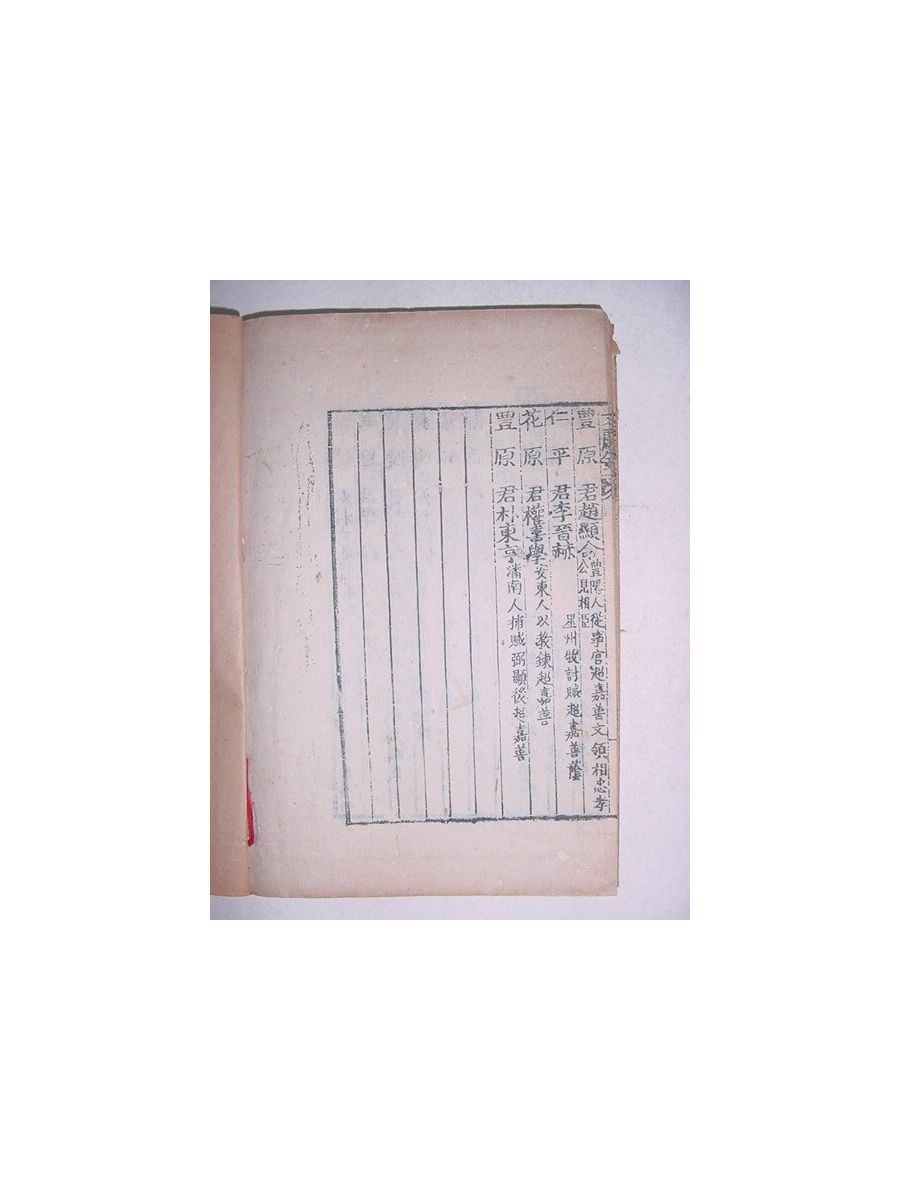 豊原君趙顯命豊陽人從事官超嘉善文領相忠孝
公見相臣
仁平君李普赫
星州牧討賊超嘉善蔭
花原君權喜學安東人以教鍊超嘉善
豊原君朴東亨潘南人捕賊弼顯後超嘉善